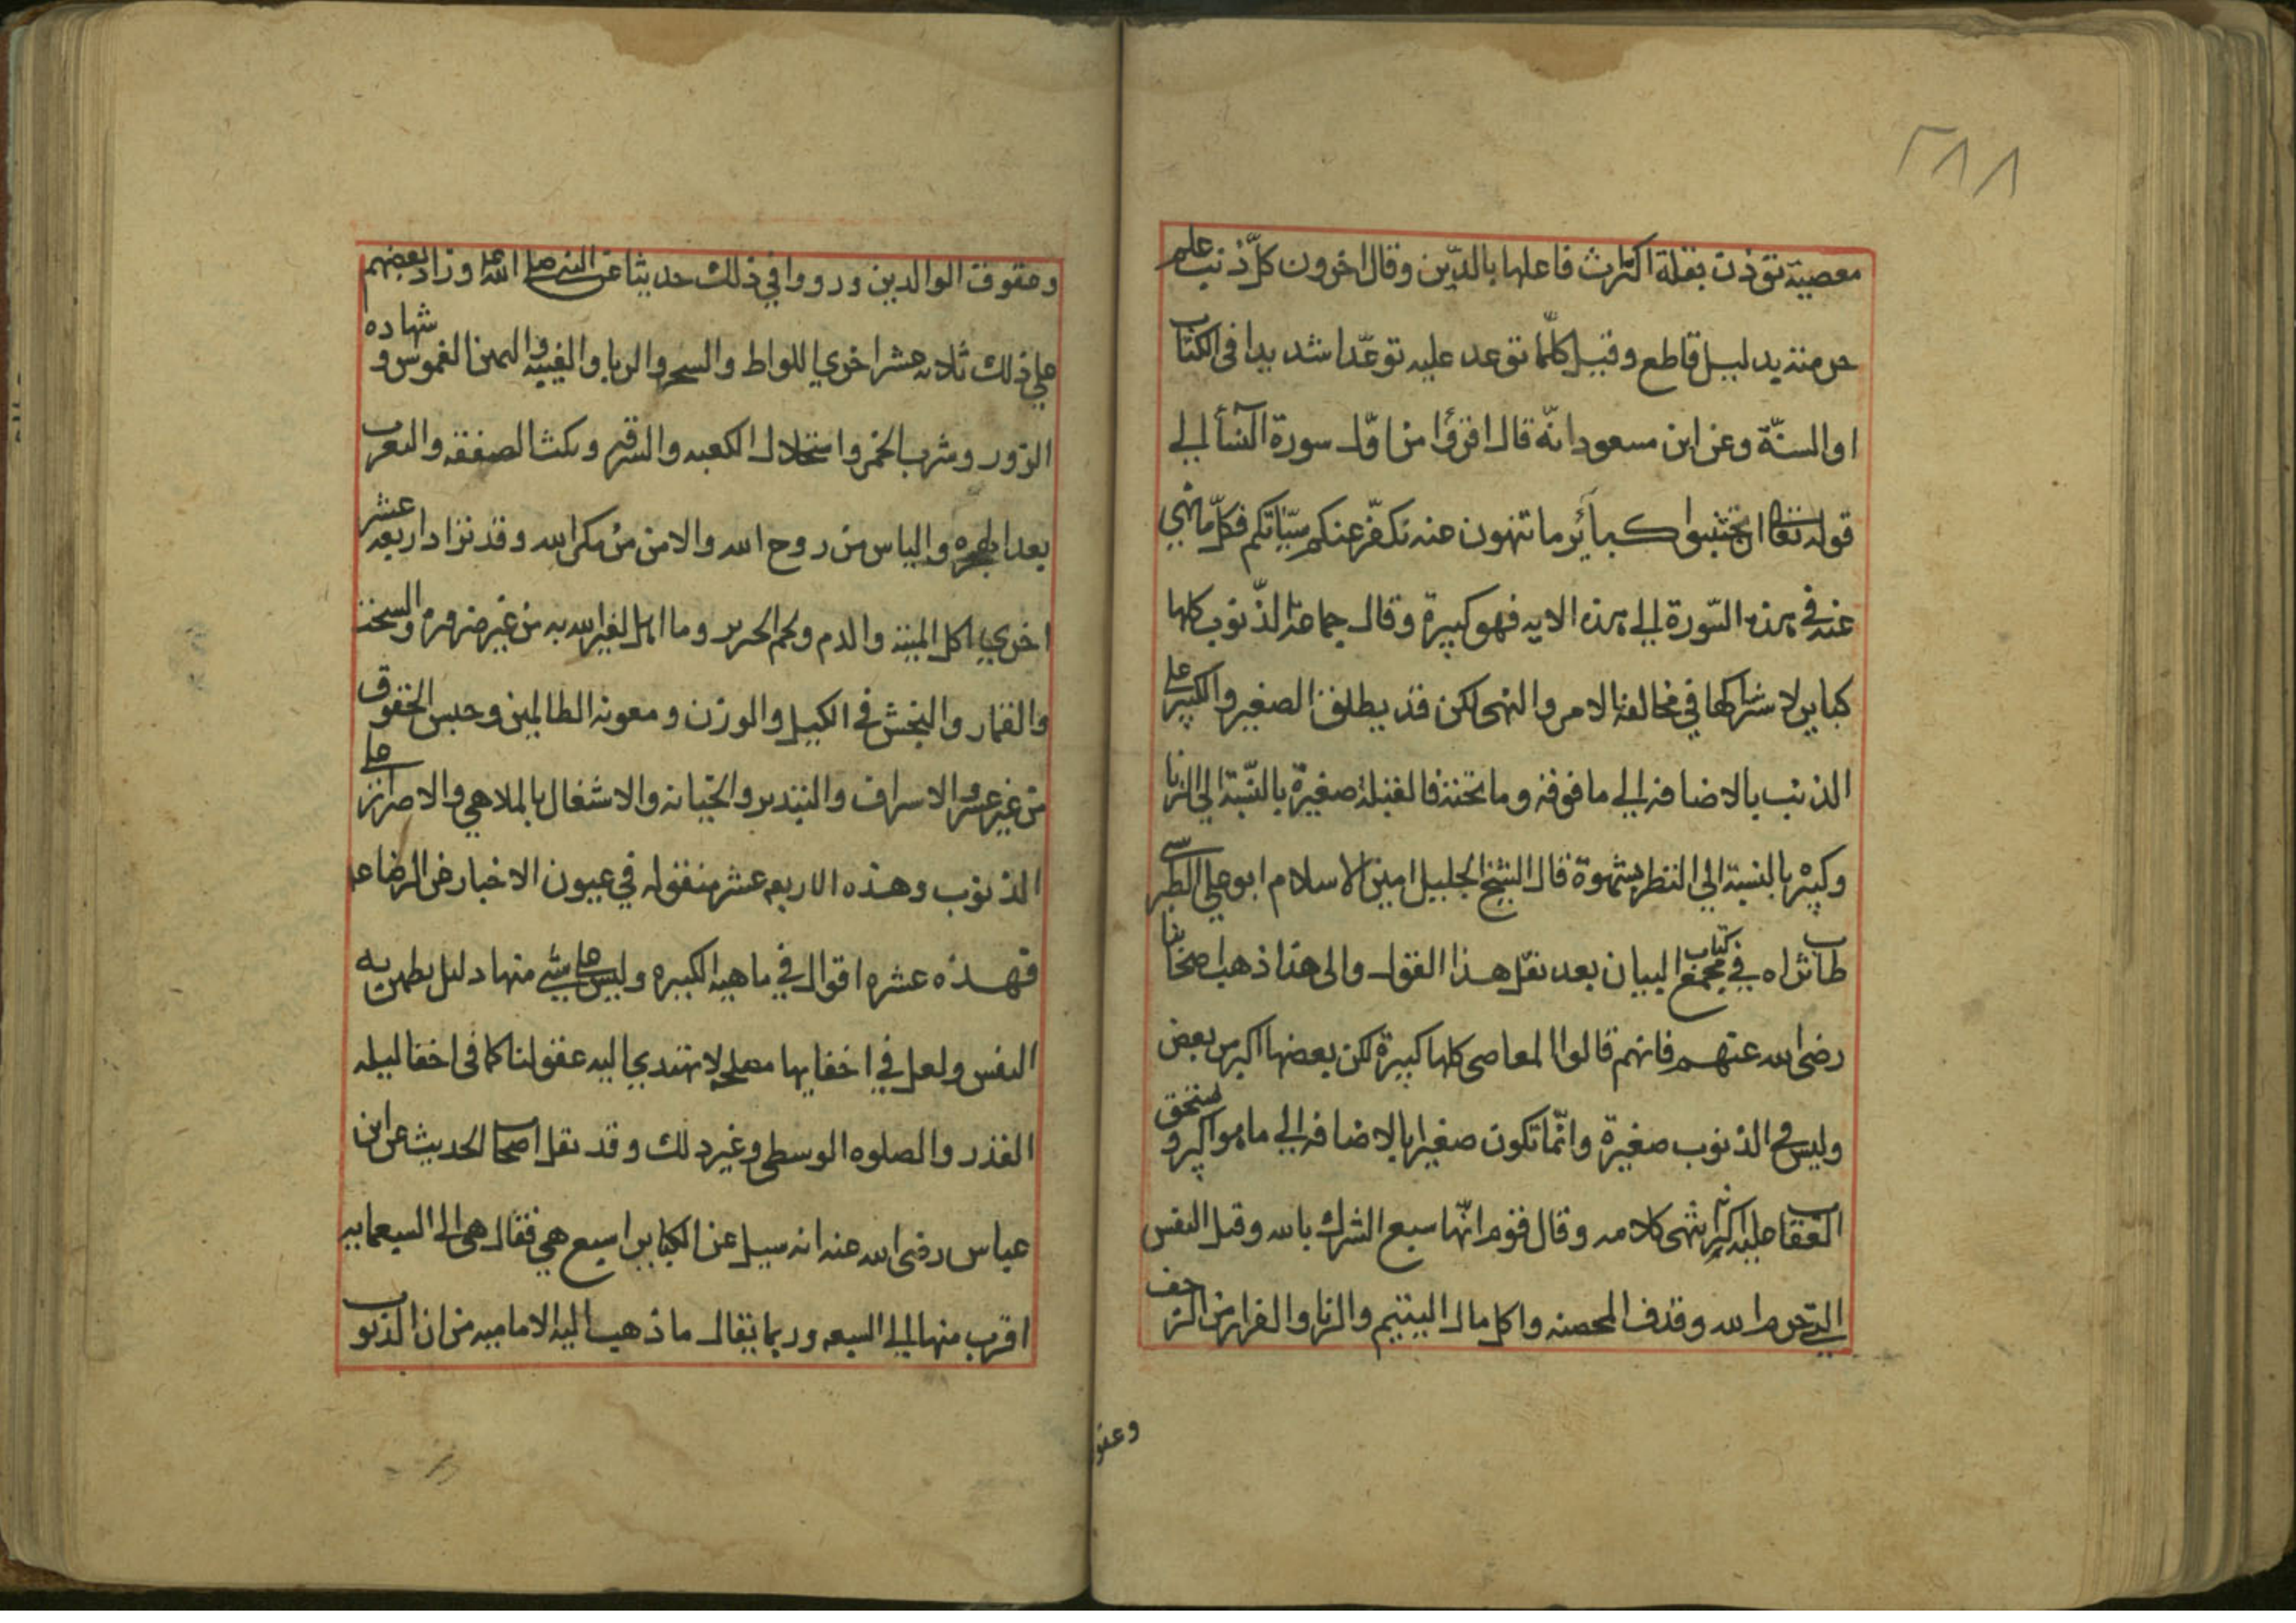 ٢٨٨
معصية تؤذن بقلة اكتراث فاعلها بالدّين وقال اخرون كلّ ذنب علم
حرمته بدليل قاطع وقيل كلّما توعد عليه توعّدا شديدا فى الكتاب
او السنّة وعن ابن مسعود انّه قال اقرؤا من اوّل سورة النسآء الي
قوله تعا ان تجتنبوا كبائر ما تنهون عنه نكفّر عنكم سيّاتكم فكلّ ما نهي
عنه في هذه السّورة الي هذه الايه فهو كبيرة وقال جماعة الذّنوب كلها
كباير لاشتراكها في مخالفة الامر والنهى لكن قد يطلق الصغير والكبير على
الذنب بالاضافه الي ما فوقه وما تحته فالقبلة صغيرة بالنّسبة الي الزنا
وكبيره بالنسبة الي النظر بشهوة قال الشيخ الجليل امين الاسلام ابو علي الطبرسى
طاب ثراه في كتاب مجمع البيان بعد نقل هذا القول والى هذا ذهب اصحابنا
رضى الله عنهم فانهم قالوا المعاصى كلها كبيرة لكن بعضها اكبر من بعض
وليس في الذنوب صغيرة وانّما تكون صغيرا بالاضافه الي ما هو اكبر و يستحق
العقاب عليه اكثر انتهى كلامه وقال قوم انّها سبع الشرك بالله وقتل النفس
التي حرم الله وقذف المحصنه واكل مال اليتيم والزنا والفرار من الزحف
وعقو
وعقوق الوالدين ورووا في ذلك حديثا عن النبى صلى الله وزاد بعضهم
علي ذلك ثلاثه عشر اخري اللواط والسحر والربا والغيبه واليمين الغموس و شهاده
الزور وشرب الخمر واستحلال الكعبه والسرقه ونكث الصفقه والتعرب
بعد الهجره والياس من روح الله والامن من مكر الله وقد تزاد اربعه عشر
اخري اكل الميته والدم ولحم الخنزير وما اهل لغير الله به من غير ضروره والسحت
والقمار والبخش في الكيل والوزن ومعونه الظالمين وحبس الحقوق
من غير عسر والاسراف والتبذير والخيانه والاشتغال بالملاهي والاصرار على
الذنوب وهذه الاربعه عشر منقوله في عيون الاخبار عن الرضا ع
فهذه عشره اقوال في ماهيه الكبيره وليس على شي منها دليل يطمئن به
النفس ولعل في اخفايها مصلحه لا تهتدي اليه عقولنا كما فى اخفا ليله
القدر والصلوه الوسطى وغير ذلك وقد نقل اصحاب الحديث عن ابن
عباس رضى الله عنه انه سيل عن الكباير اسبع هي فقال هى الى السبعمايه
اقرب منها الي السبعه وربما يقال ما ذهب اليه الاماميه من ان الذنوب